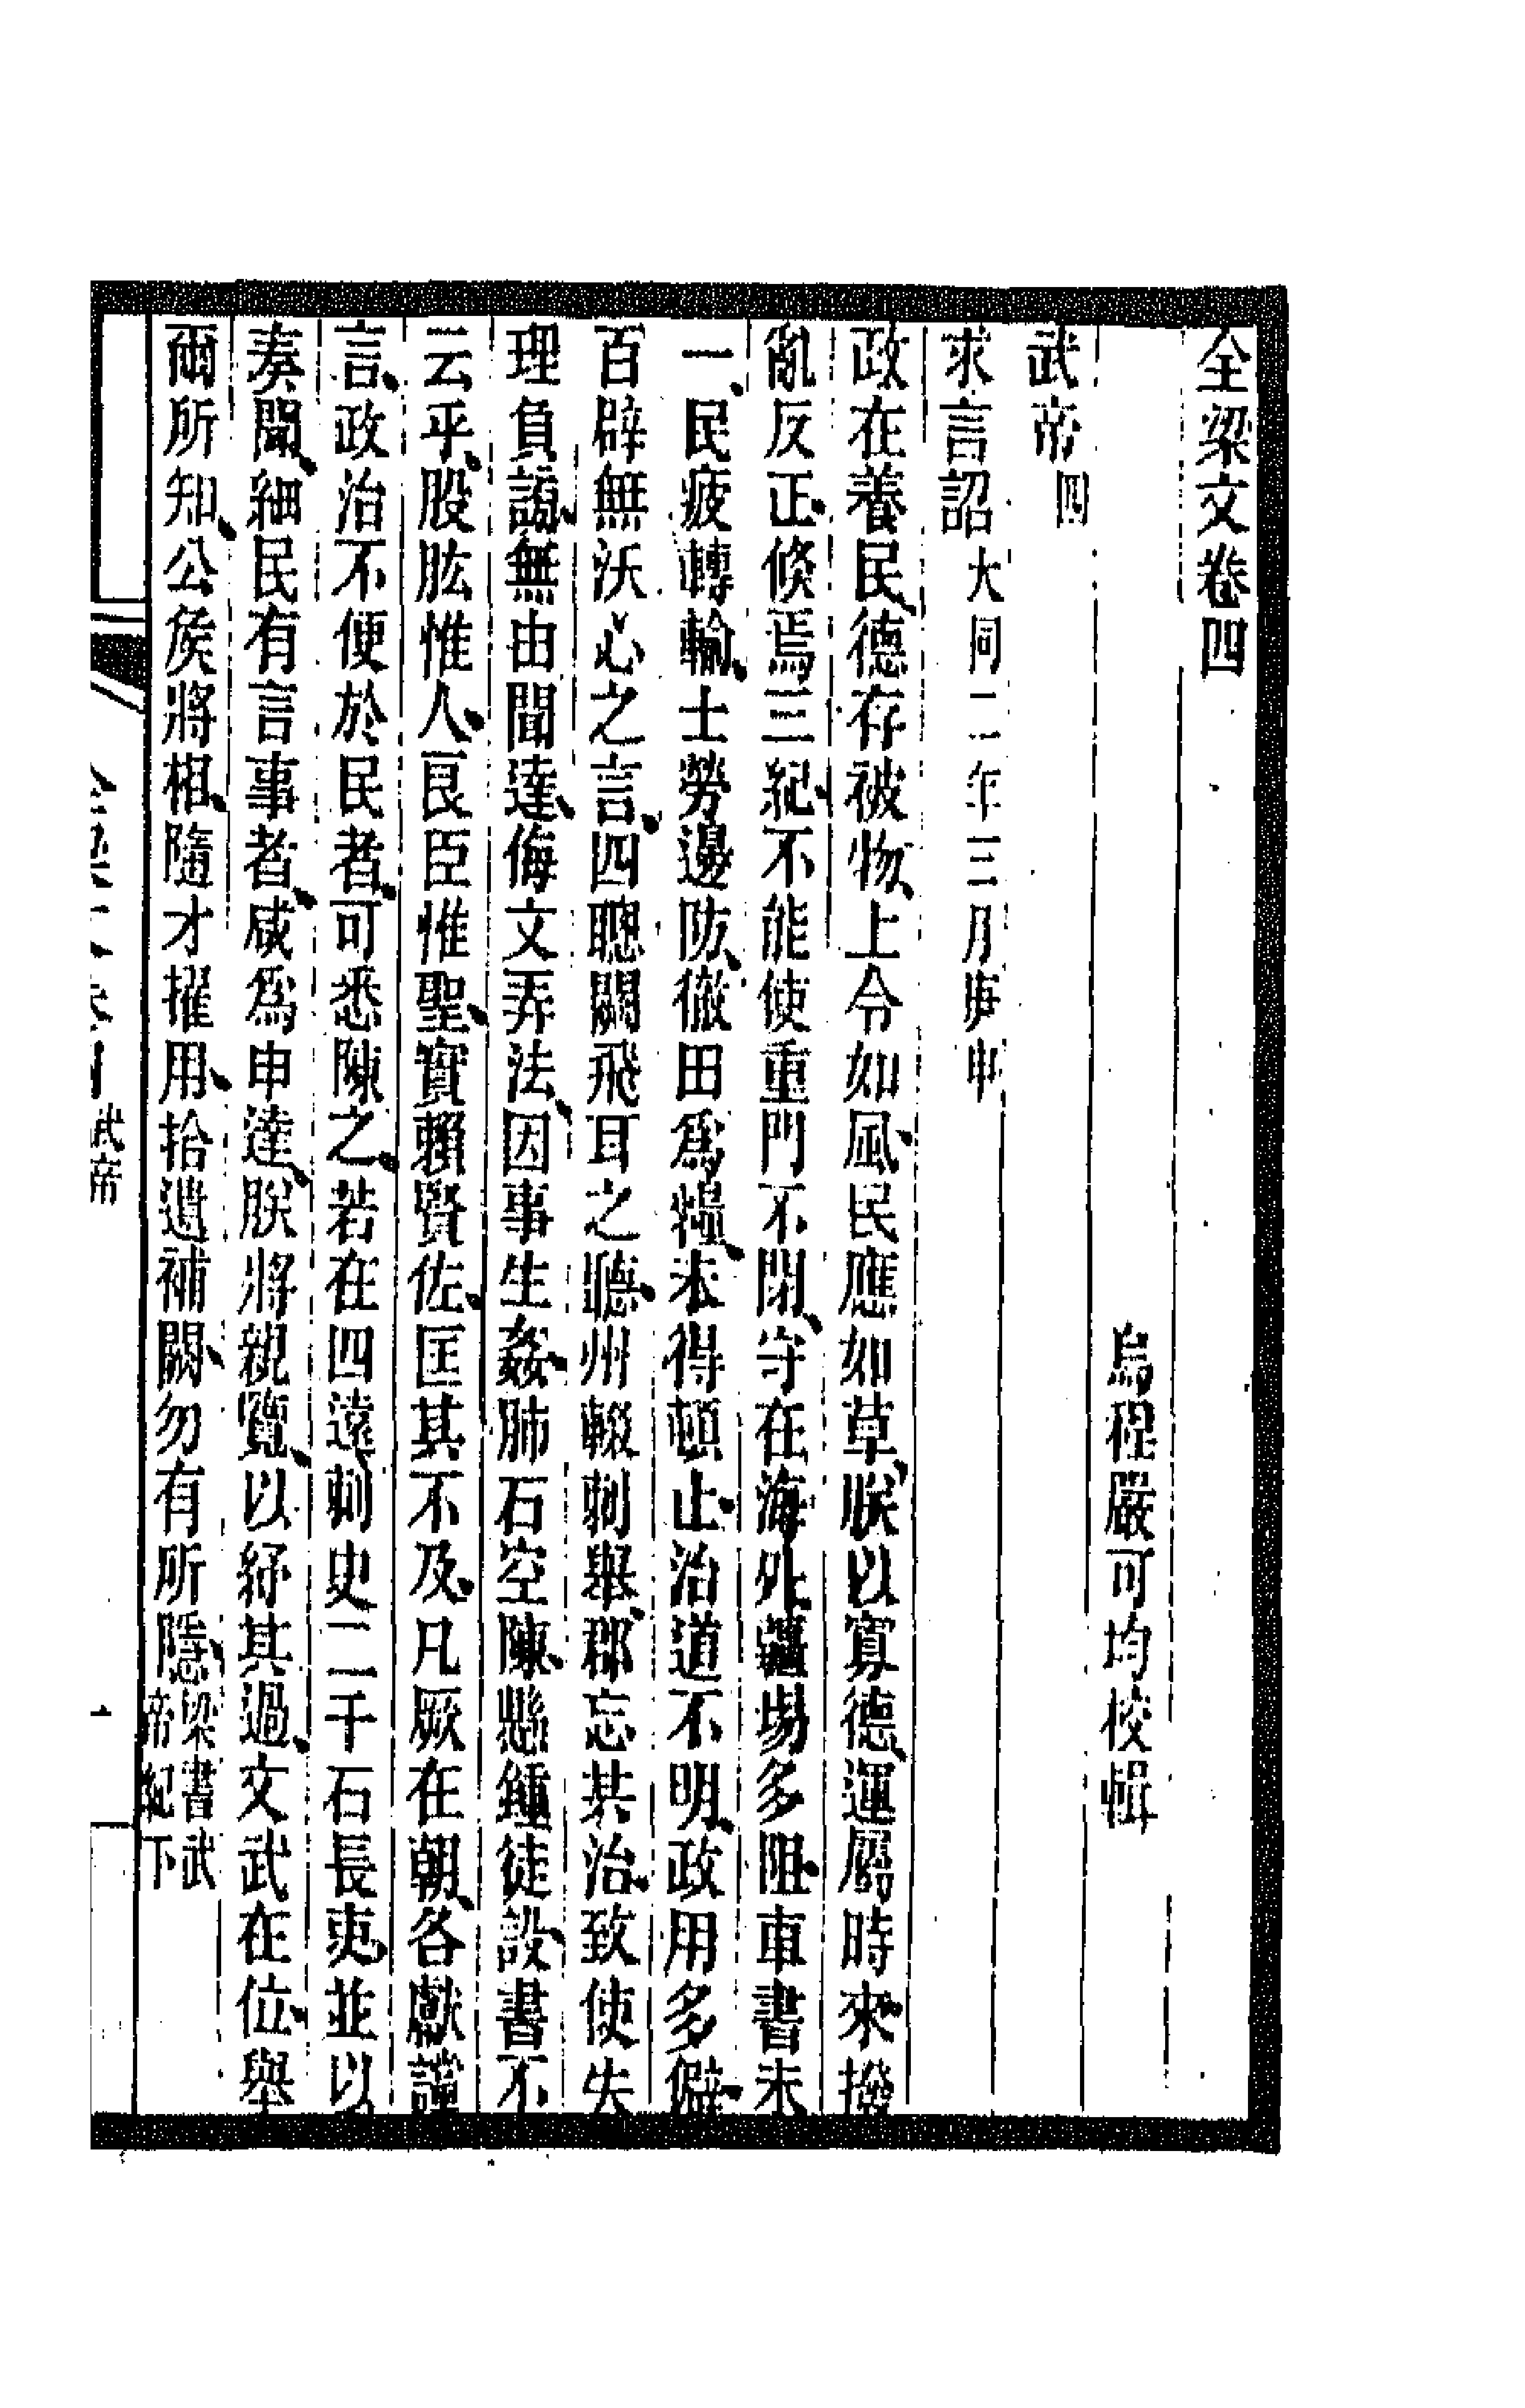 全梁文卷四
烏程嚴可均校輯
武帝四
求言詔大同二年三月庚申
政在養民、德存被物、上令如風、民應如草、朕以寡德、運屬時來、撥
亂反正、倏焉三紀、不能使重門不閉、守在海外、疆埸多阻、車書未
一、民疲轉輸、士勞邊防、徹田爲糧、未得頓止、治道不明、政用多僻、
百辟無沃心之言、四聰闕飛耳之聽、州輟刺舉、郡忘共治、致使失
理負謗、無由聞達、侮文弄法、因事生姦、肺石空陳、懸鍾徒設、書不
云乎、股肱惟人、良臣惟聖、實賴賢佐、匡其不及、凡厥在朝、各獻讜
言、政治不便於民者、可悉陳之、若在四遠、刺史二千石長吏、並以
奏聞、細民有言事者、咸爲申達、朕將親覽、以紓其過、文武在位、舉
爾所知、公矦將相、隨才擢用、拾遺補闕、勿有所隱、梁書武帝紀下
武帝
一